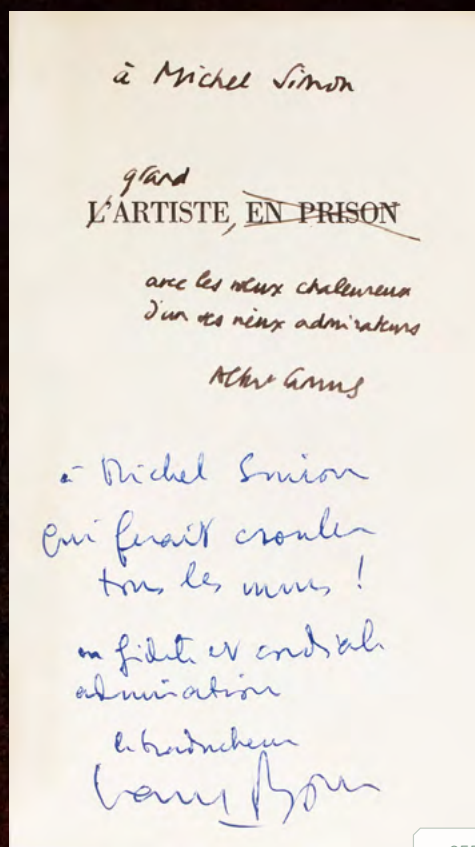 à Michel Simon
grand
L'ARTISTE, EN PRISON
avec les vœux chaleureux
d'un de ses vieux admirateurs
Albert Camus
à Michel Simon
qui ferait crouler
tous les murs !
en fidèle et cordiale
admiration
le traducteur